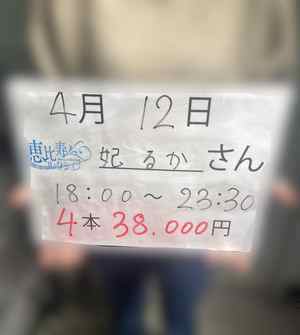 4月 12日
恵比寿 妃 るか さん
18:00～23:30
4本 38.000円